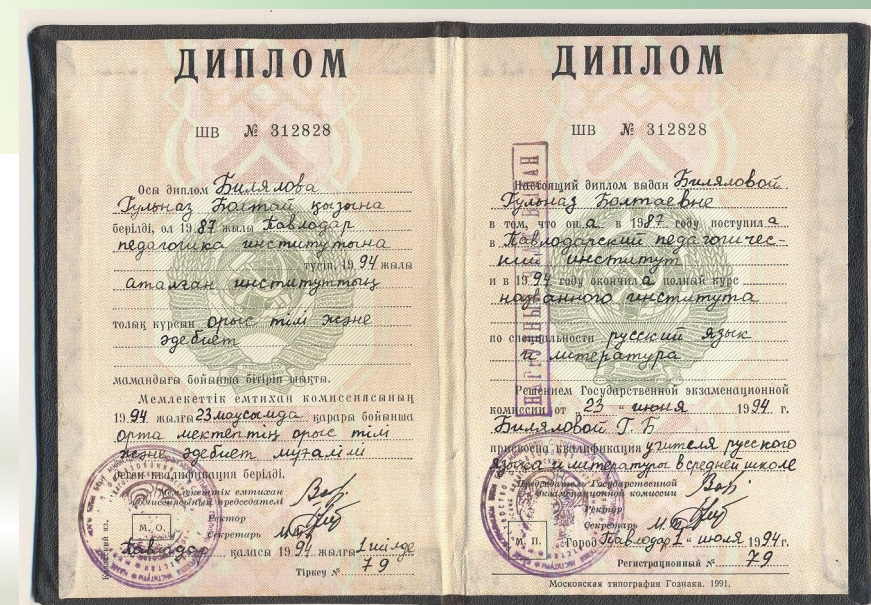 ДИПЛОМ
ШВ № 312828
Осы диплом Билялова
Гульназ Болтай қызына
берілді, ол 1987 жылы Павлодар
педагогика институтына
түсіп, 1994 жылы
аталған институттың
толық курсын орыс тілі және
әдебиет
мамандығы бойынша бітіріп шықты.
Мемлекеттік емтихан комиссиясының
1994 жылғы 23 маусымда қарары бойынша
орта мектептің орыс тілі
және әдебиет мұғалімі
деген квалификация берілді.
Мемлекеттік емтихан
комиссиясының председателі
Ректор
Секретарь
М. О.
Павлодар қаласы 1994 жылғы 1 шілде
Тіркеу № 79
ДИПЛОМ
ШВ № 312828
Настоящий диплом выдан Биляловой
Гульназ Болтаевне
в том, что он а в 1987 году поступил а
в Павлодарский педагогичес-
кий институт
и в 1994 году окончил а полный курс
названного института
по специальности русский язык
и литература
Решением Государственной экзаменационной
комиссии от 23 " июня 1994 г.
Биляловой Г. Б
присвоена квалификация учителя русского
языка и литературы в средней школе
Председатель Государственной
экзаменационной комиссии
Ректор
Секретарь
М. П.
Город Павлодар 1 " июля 1994 г.
Регистрационный № 79
Московская типография Гознака. 1991.
НАГРУДНЫЙ ЗНАК ВЫДАН